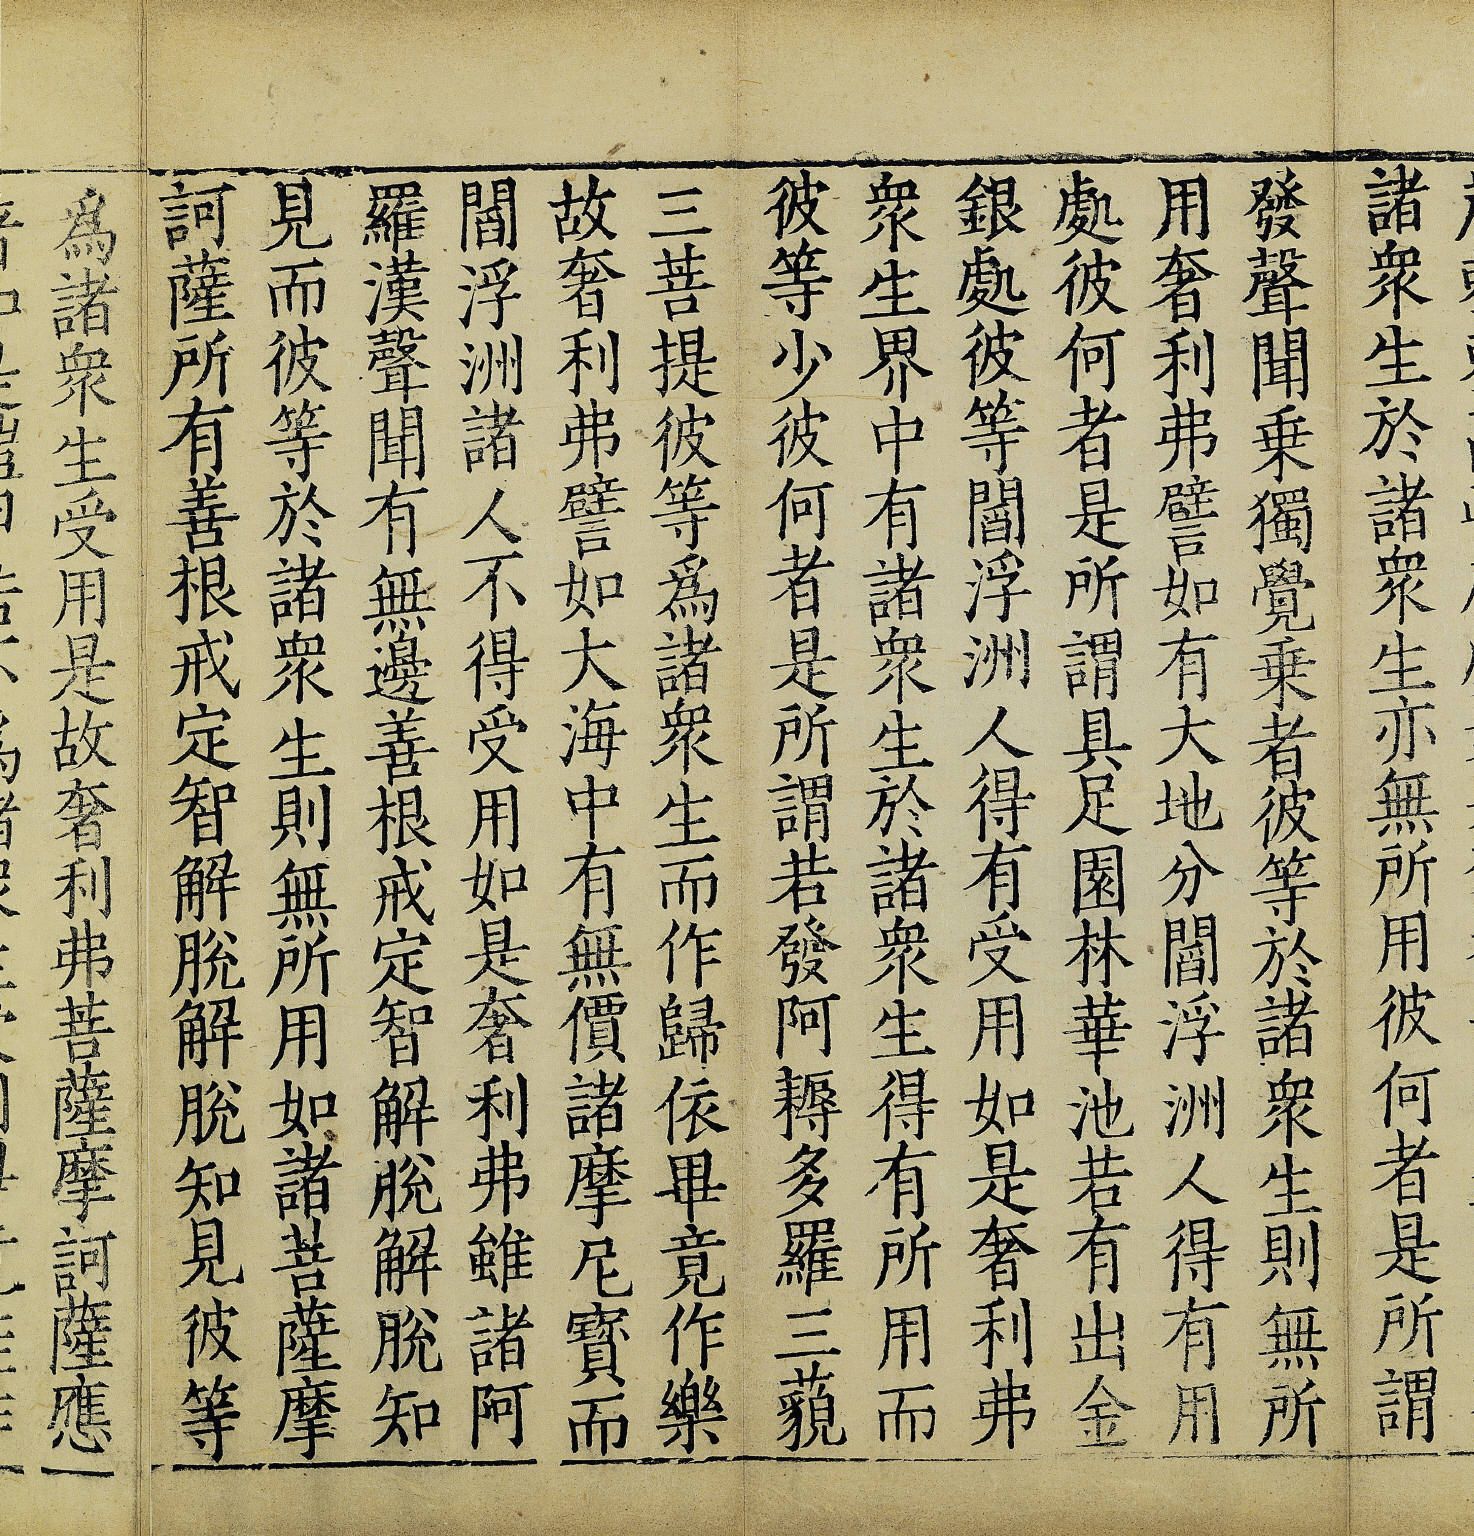 諸衆生於諸衆生亦無所用彼何者是所謂
發聲聞乗獨覺乗者彼等於諸衆生則無所
用奢利弗譬如有大地分閻浮洲人得有用
處彼何者是所謂具足園林華池若有出金
銀處彼等閻浮洲人得有受用如是奢利弗
衆生界中有諸衆生於諸衆生得有所用而
彼等少彼何者是所謂若發阿耨多羅三藐
三菩提彼等爲諸衆生而作歸依畢竟作樂
故奢利弗譬如大海中有無價諸摩尼寳而
閻浮洲諸人不得受用如是奢利弗雖諸阿
羅漢聲聞有無邊善根戒定智解脫解脫知
見而彼等於諸衆生則無所用如諸菩薩摩
訶薩所有善根戒定智解脫解脫知見彼等
爲諸衆生受用是故奢利弗菩薩摩訶薩應